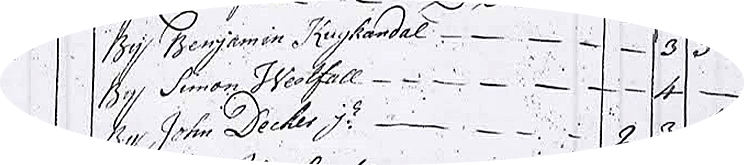 By Benjamin Kuykandal — — — — — 3
By Simon Westfall — — — — — — 4 —
By John Decker jr — — — — 2 3